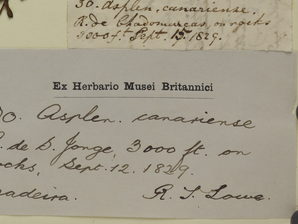 30. Asplen. canariense
R. de
on rocks
3000 ft. Sept. 1829.
Ex Herbario Musei Britannici
0. Asplen. canariense
. de D. Jorge, 3000 ft. on
ocks, Sept. 12. 1829.
adeira. R. T. Lowe.